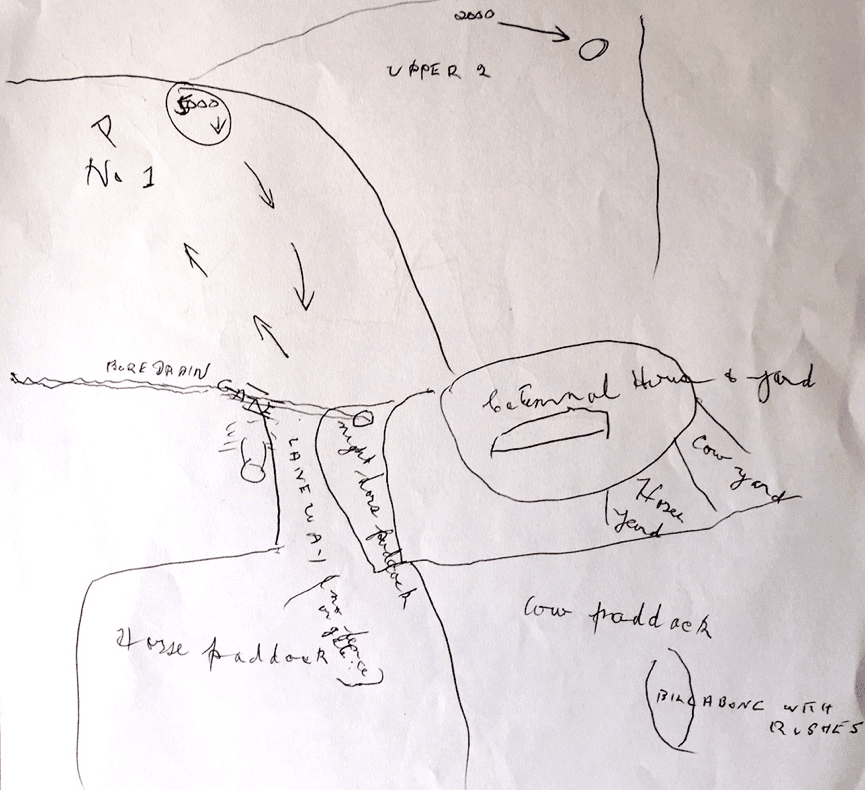 2000
UPPER 2
5000
P
No. 1
BOREDRAIN
GATE
House & yard
LANEWAY
night horse paddock
Cow yard
Horse
Yard
(no fence
or gate)
Horse paddock
Cow paddock
BILLABONG WITH
RUSHES